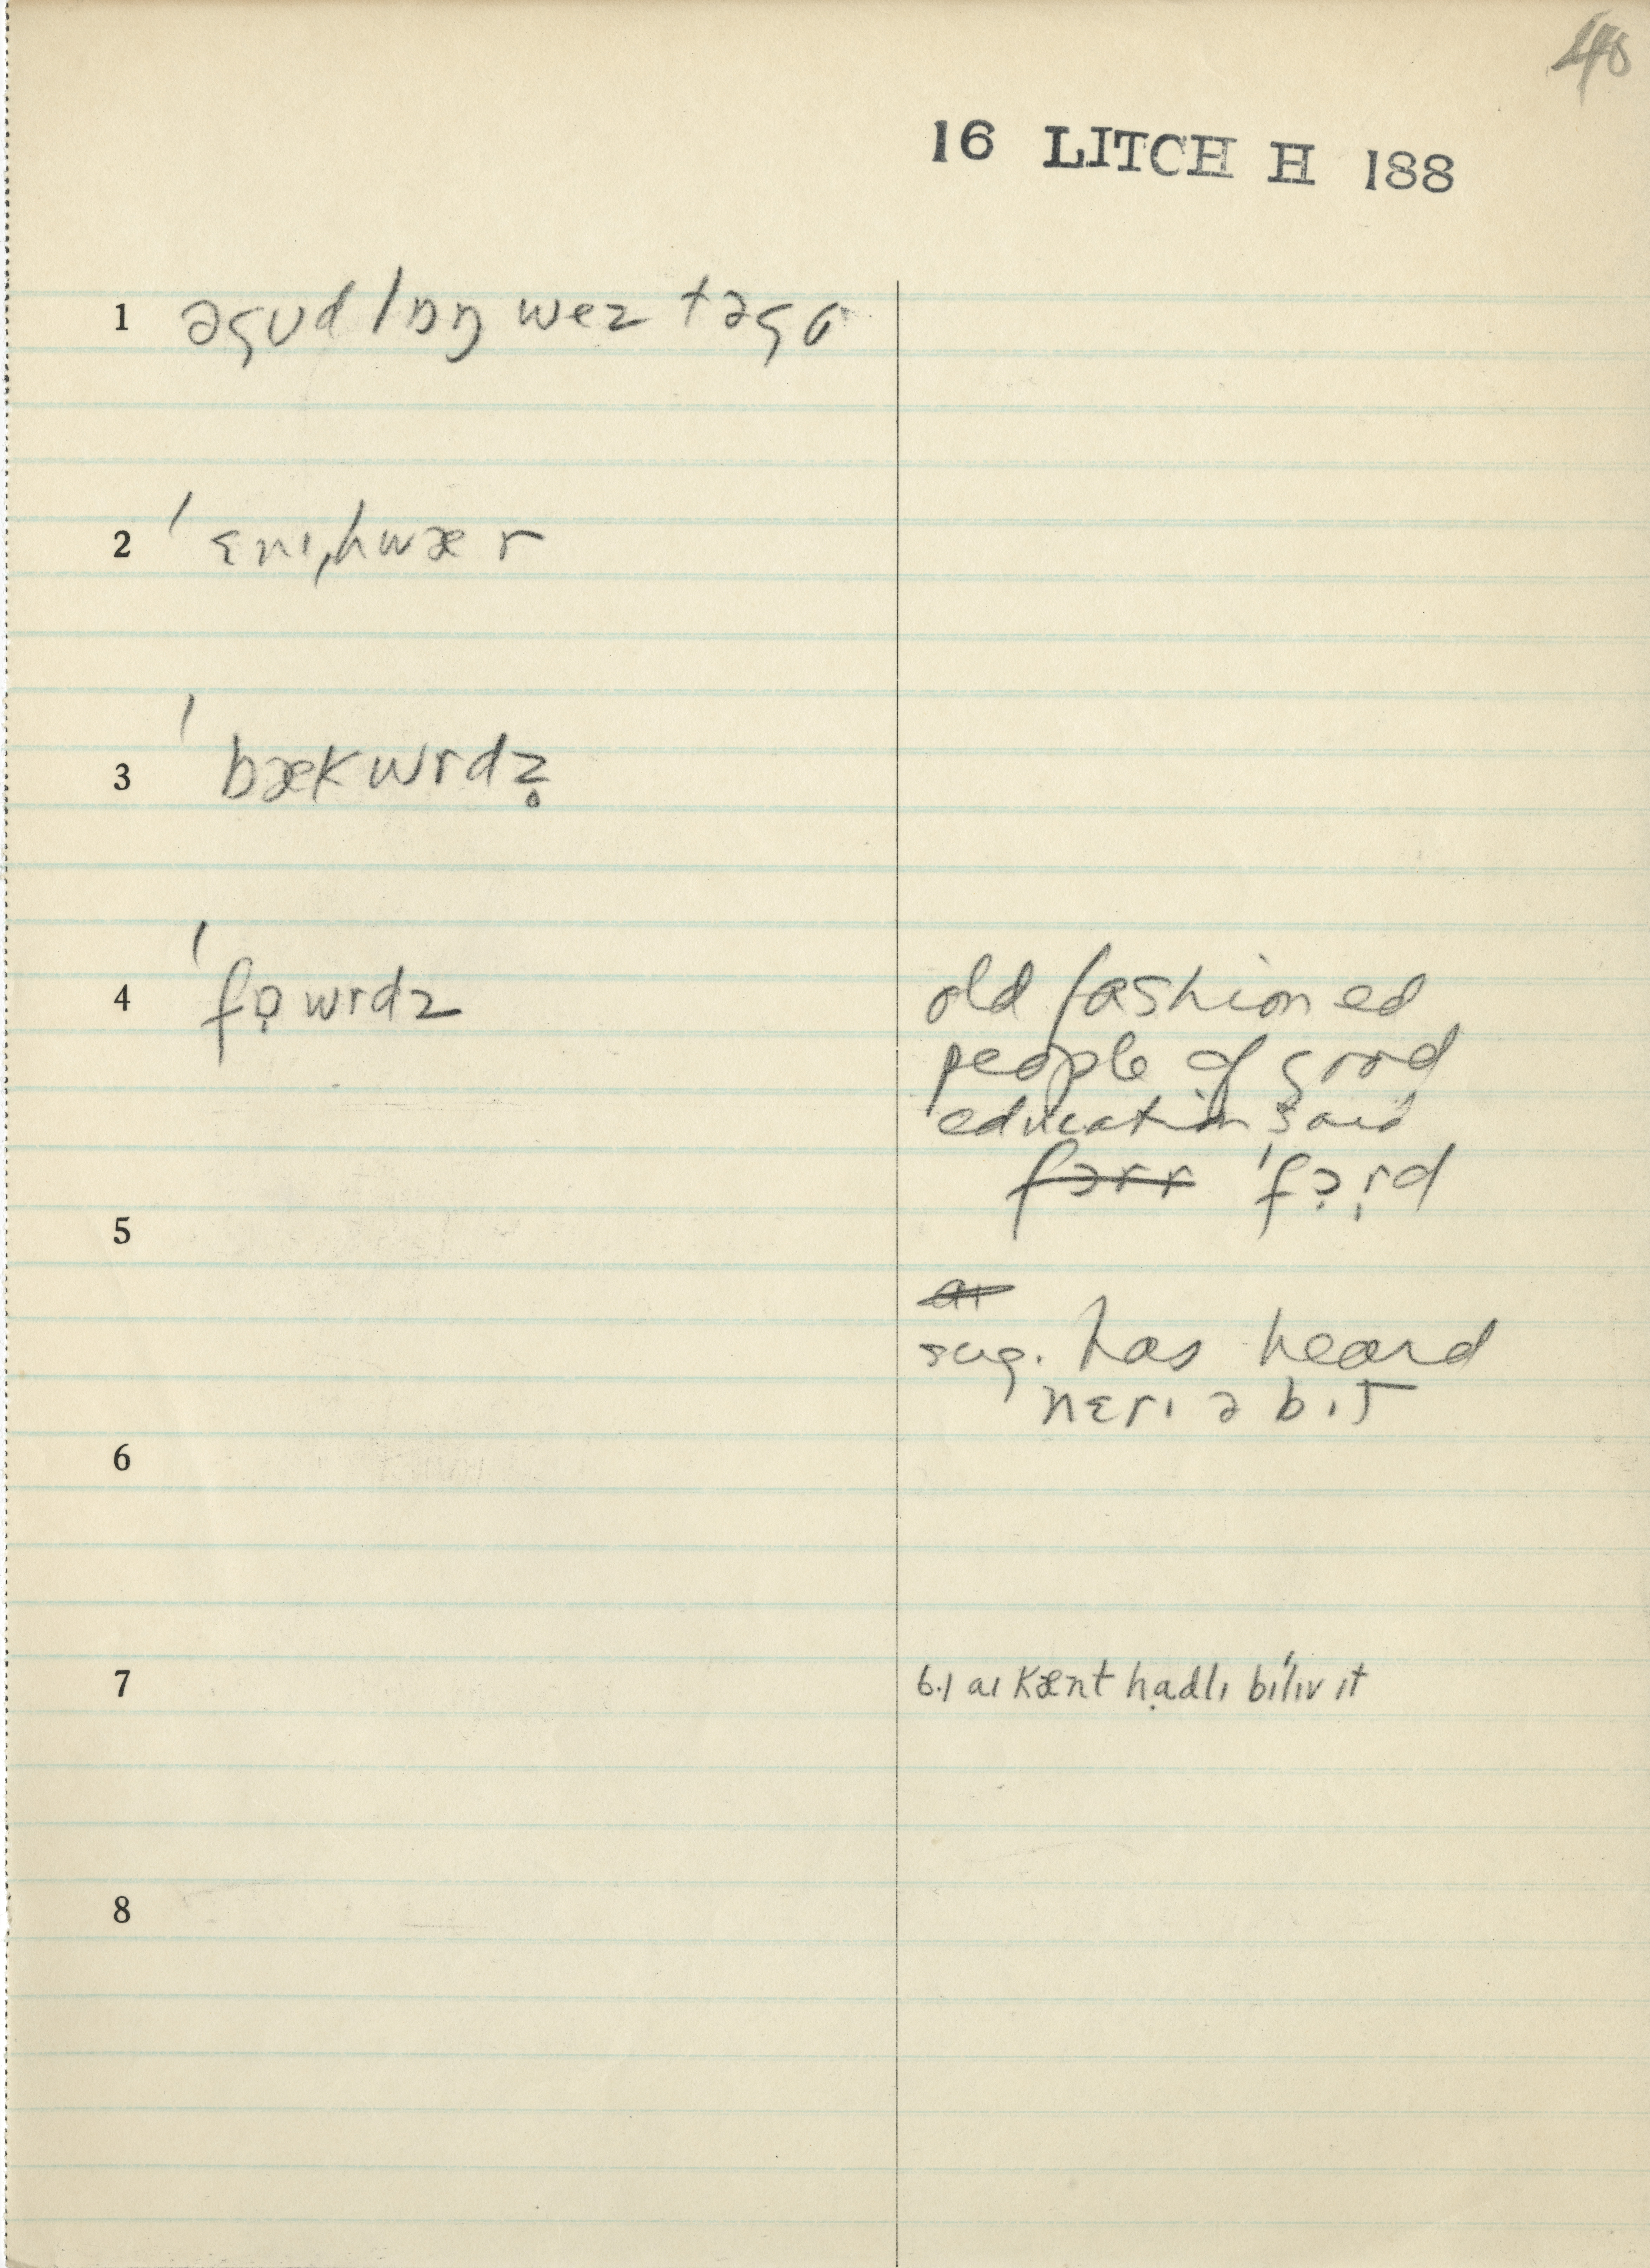 40
16 LITCH H 188
1 əgʊd lɒŋ wez təgo
2 ˈɛnɪˌhwær
3 ˈbækwrdz̥
4 ˈfɒ̣wrdz
old fashioned
people of good
education said
fɔrr ˈfɔ̣r̩d
5
aɪ
sug. has heard
nɛrɪ ə bɪt
6
7 6.1 aɪ kænt hạdlɪ bɪˈlɪv ɪt
8